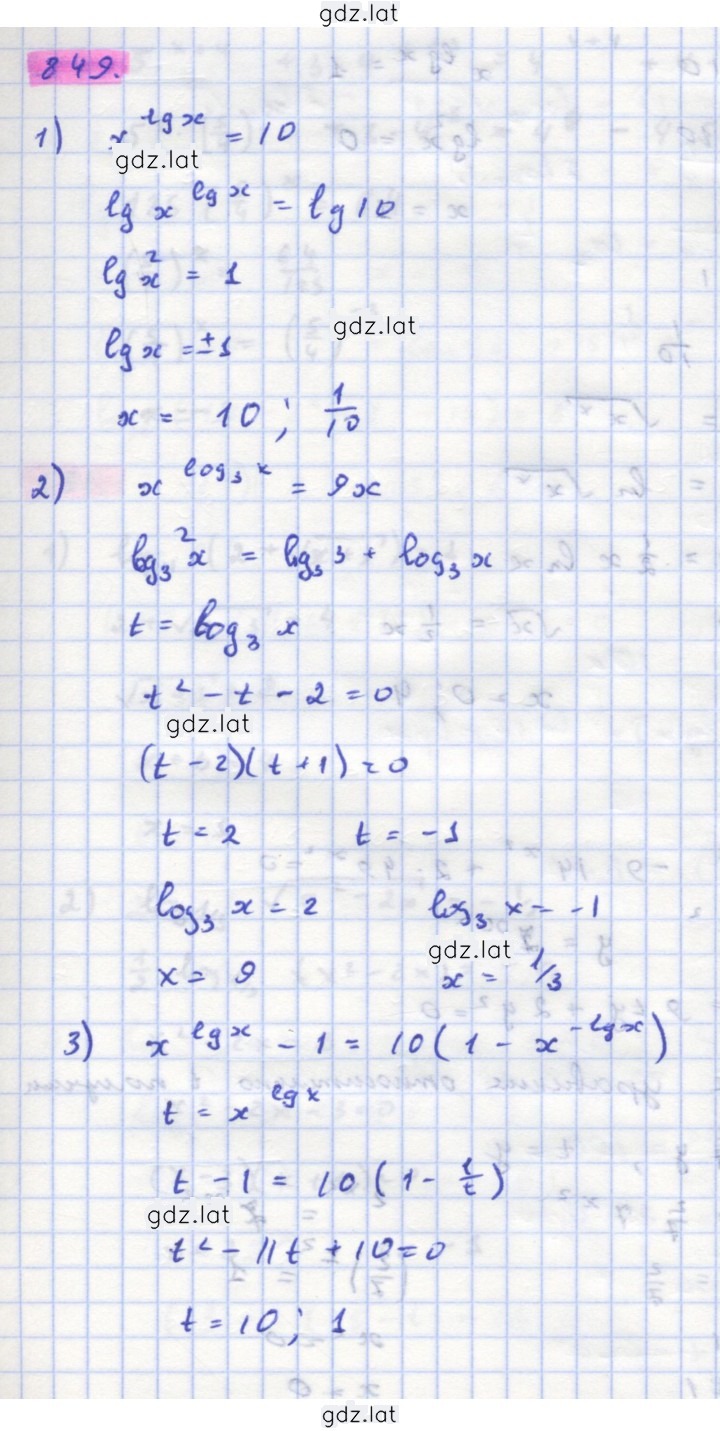 gdz.lat
849.
1) x^{lg x} = 10
gdz.lat
lg x^{lg x} = lg 10
lg^2 x = 1
gdz.lat
lg x = ±1
x = 10 ; 1/10
2) x^{log_3 x} = 9x
log_3^2 x = log_3 3 + log_3 x
t = log_3 x
t^2 - t - 2 = 0
gdz.lat
(t - 2)(t + 1) = 0
t = 2 t = -1
log_3 x = 2 log_3 x = -1
gdz.lat
x = 9 x = 1/3
3) x^{lg x} - 1 = 10(1 - x^{-lg x})
t = x^{lg x}
t - 1 = 10(1 - 1/t)
gdz.lat
t^2 - 11t + 10 = 0
t = 10 ; 1
gdz.lat